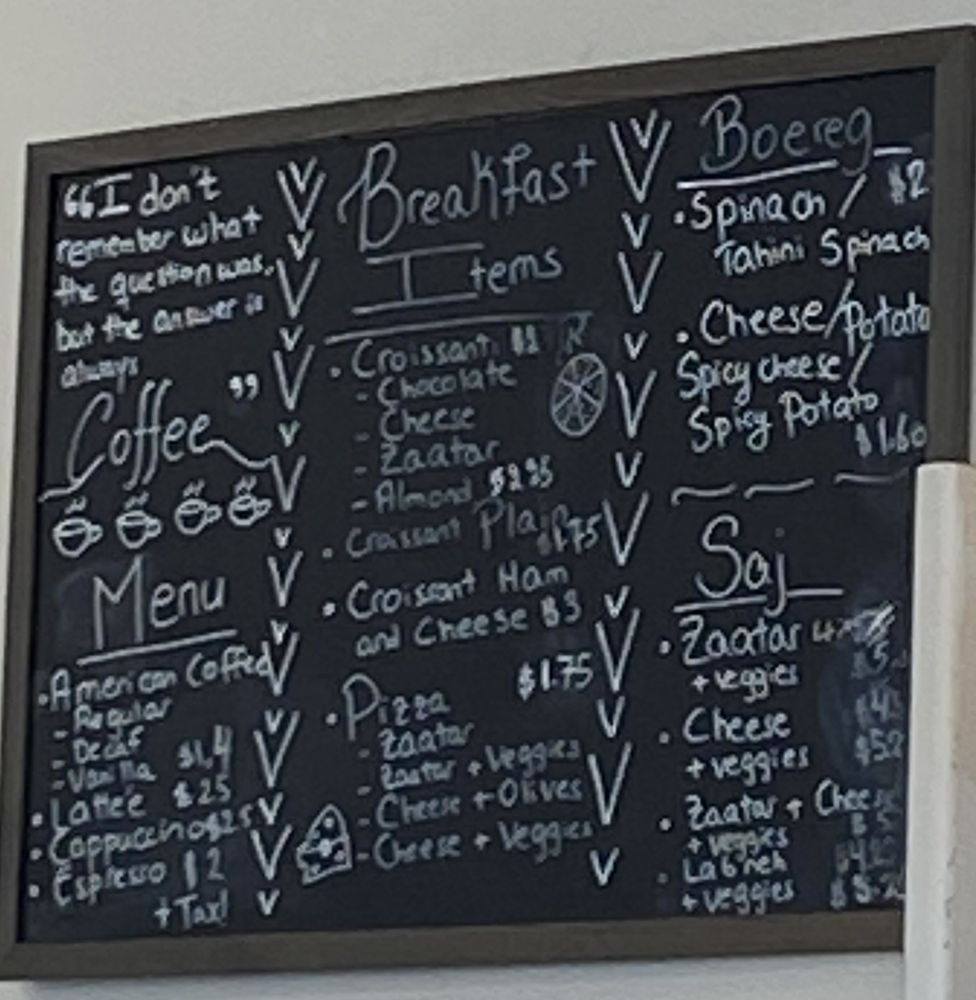 “I don't
remember what
the question was,
but the answer is
always
Coffee”
Menu
• American Coffee
- Regular
- Decaf
- Vanilla $1,4
• Lattee $25
• Cappuccino $25
• Espresso $2
+ Tax!
Breakfast
Items
• Croissant
- Chocolate
- Cheese
- Zaatar
- Almond
• Croissant Plain $1.75
• Croissant Ham
and Cheese $3
$1.75
• Pizza
- Zaatar
- Zaatar + Veggies
- Cheese + Olives
- Cheese + Veggies
Boereg
• Spinach / $2
Tahini Spinach
• Cheese/Potato
Spicy cheese /
Spicy Potato
$1.60
Saj
• Zaatar
+ veggies
• Cheese
+ veggies
• Zaatar + Cheese
+ veggies
• Labneh
+ veggies